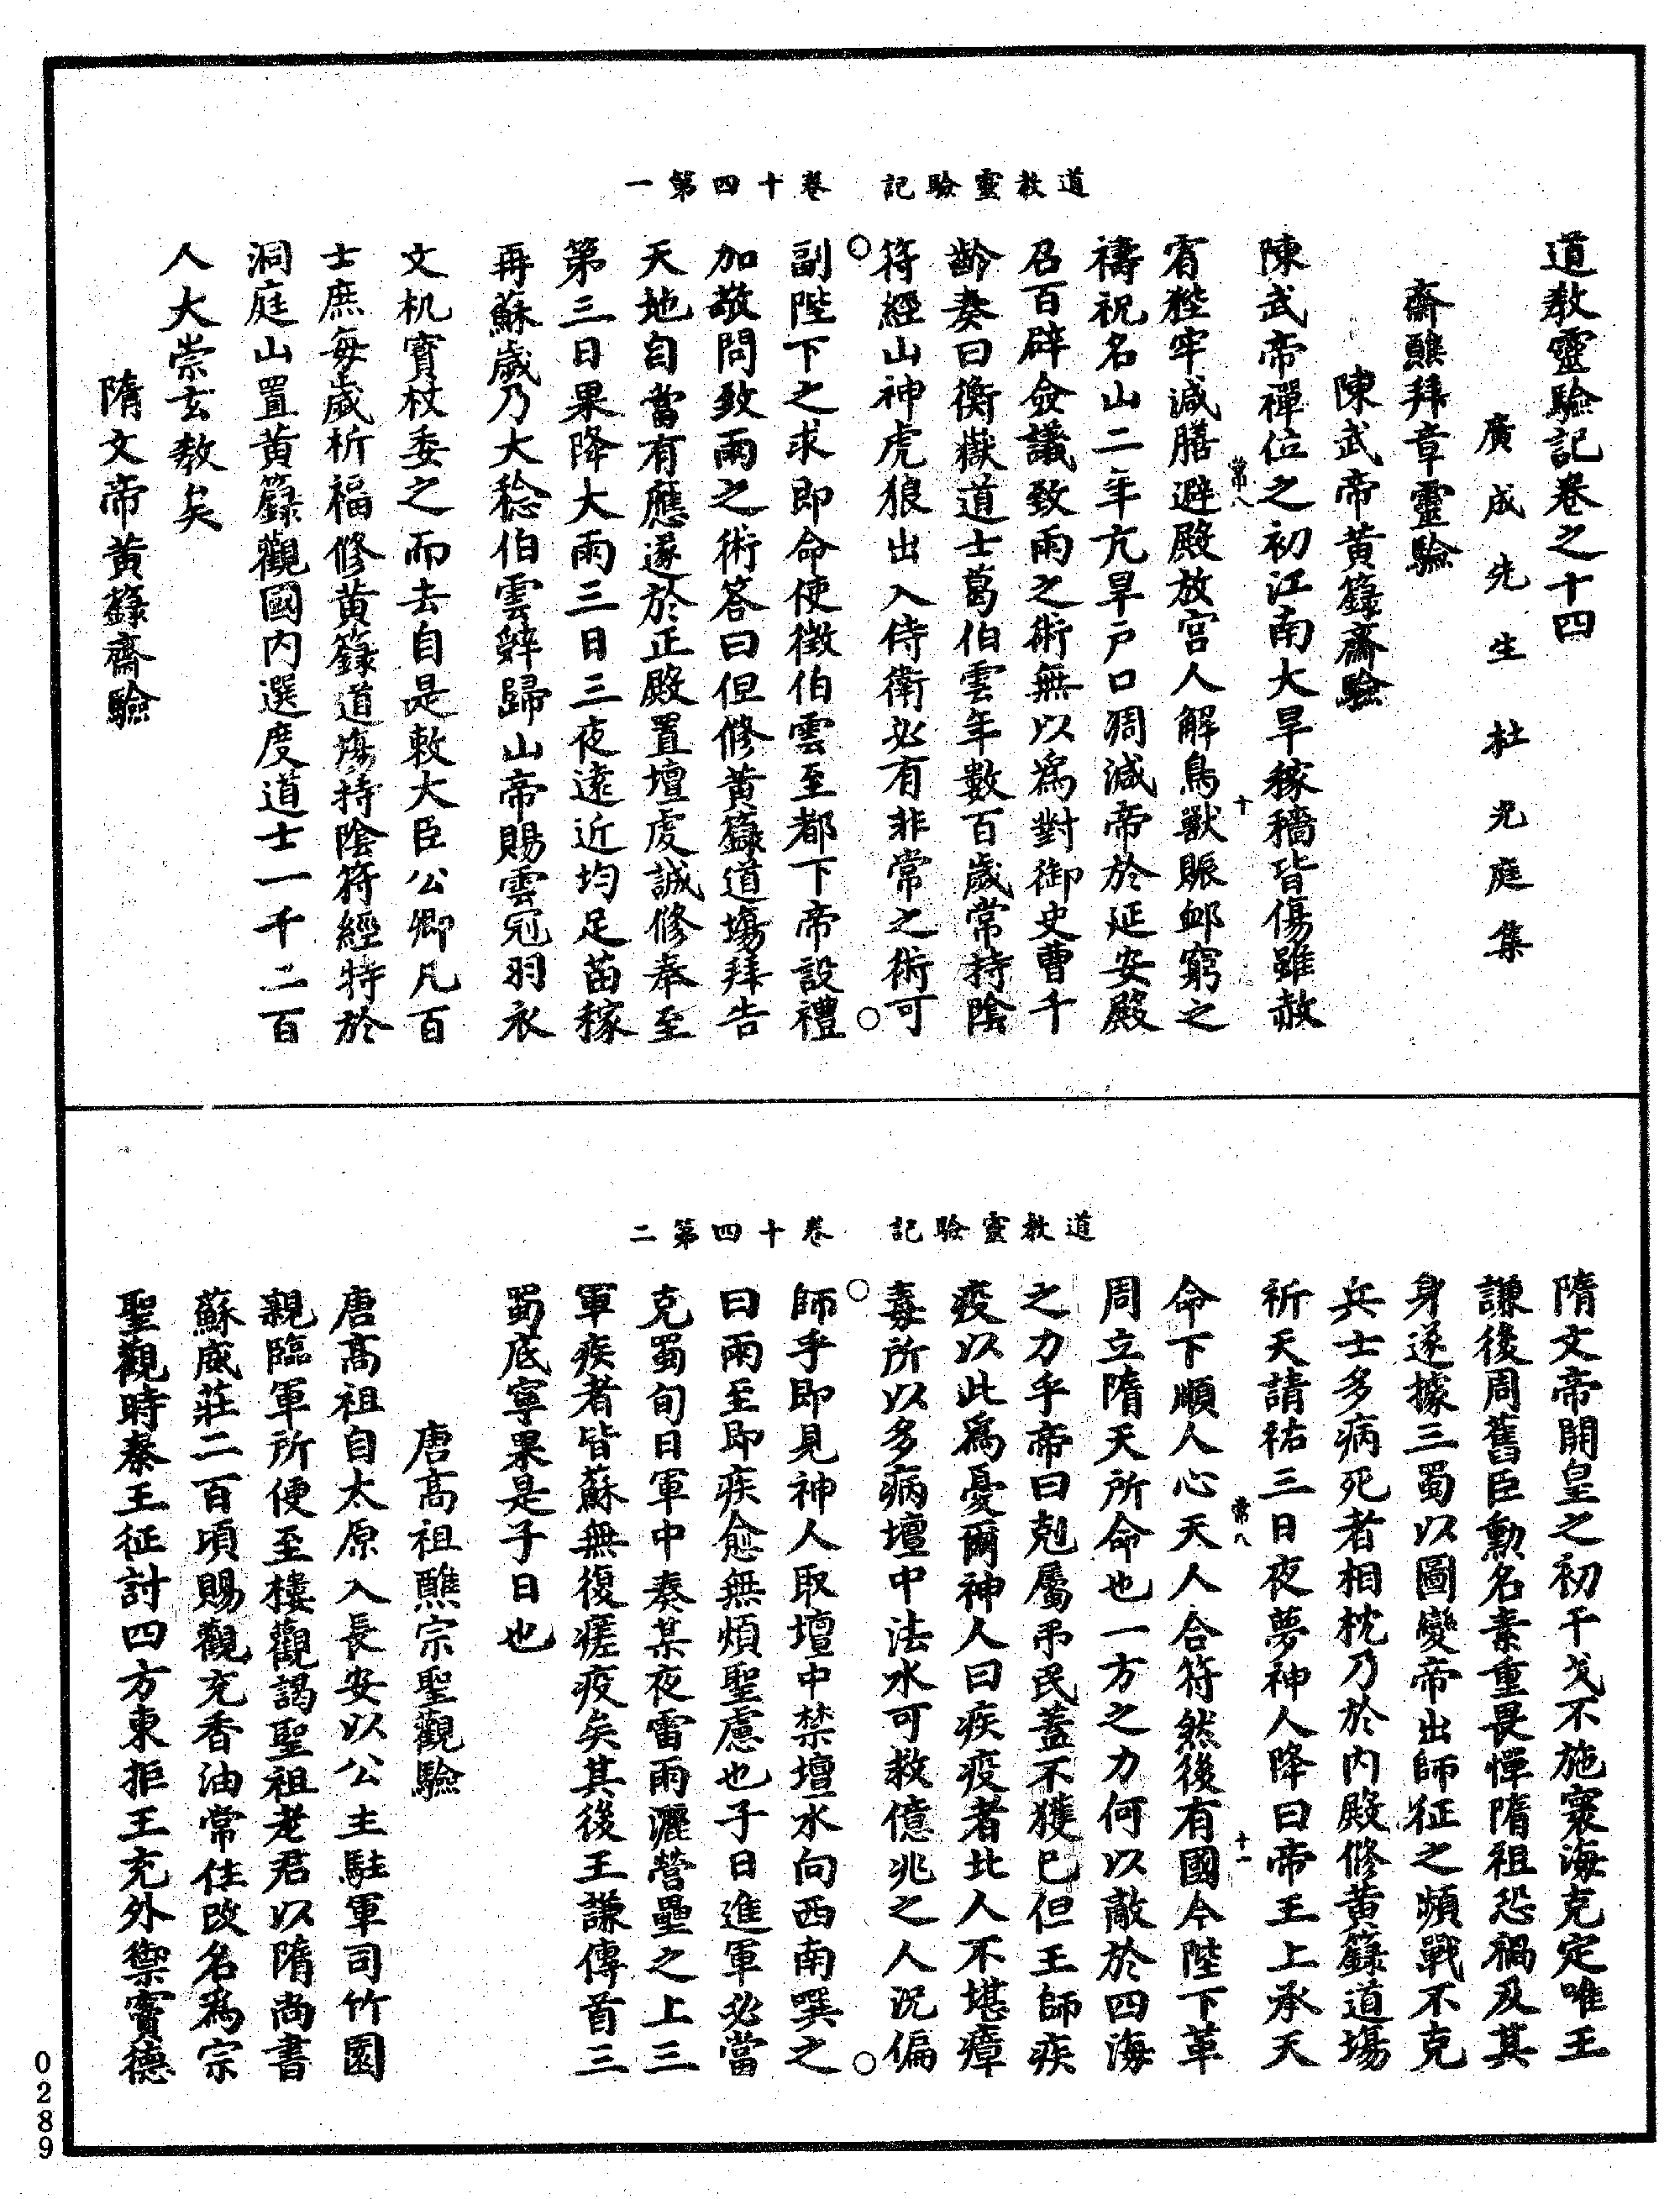 道教靈驗記　卷十四第一
道教靈驗記卷之十四
廣成先生杜光庭集
齋醮拜章靈驗
陳武帝黃籙齋驗
陳武帝禪位之初江南大旱稼穡皆傷雖赦
常八　十
宥狴牢減膳避殿放宮人解鳥獸賑卹窮之
禱祝名山二年亢旱戶口凋減帝於延安殿
召百辟僉議致雨之術無以爲對御史曹千
齡奏曰衡嶽道士葛伯雲年數百歲常持陰
符經山神虎狼出入侍衛必有非常之術可
副陛下之求即命使徵伯雲至都下帝設禮
加敬問致雨之術答曰但修黃籙道場拜告
天地自當有應遂於正殿置壇虔誠修奉至
第三日果降大雨三日三夜遠近均足苗稼
再蘇歲乃大稔伯雲辭歸山帝賜雲冠羽衣
文机寶杖委之而去自是敕大臣公卿凡百
士庶每歲祈福修黃籙道場持陰符經特於
洞庭山置黃籙觀國內選度道士一千二百
人大崇玄教矣
隋文帝黃籙齋驗
道教靈驗記　卷十四第二
隋文帝開皇之初干戈不施寰海克定唯王
謙後周舊臣勳名素重畏憚隋祖恐禍及其
身遂據三蜀以圖變帝出師征之頻戰不克
兵士多病死者相枕乃於內殿修黃籙道場
祈天請祐三日夜夢神人降曰帝王上承天
常八　十一
命下順人心天人合符然後有國今陛下革
周立隋天所命也一方之力何以敵於四海
之力乎帝曰剋屬弔民蓋不獲已但王師疾
疫以此爲憂爾神人曰疾疫者北人不堪瘴
毒所以多病壇中法水可救億兆之人況偏
師乎即見神人取壇中禁壇水向西南噀之
曰雨至即疾愈無煩聖慮也子日進軍必當
克蜀旬日軍中奏某夜雷雨灑營壘之上三
軍疾者皆蘇無復瘥疫矣其後王謙傳首三
蜀底寧果是子日也
唐高祖醮宗聖觀驗
唐高祖自太原入長安以公主駐軍司竹園
親臨軍所便至樓觀謁聖祖老君以隋尚書
蘇威莊二百頃賜觀充香油常住改名爲宗
聖觀時秦王征討四方東拒王充外禦竇德
0289